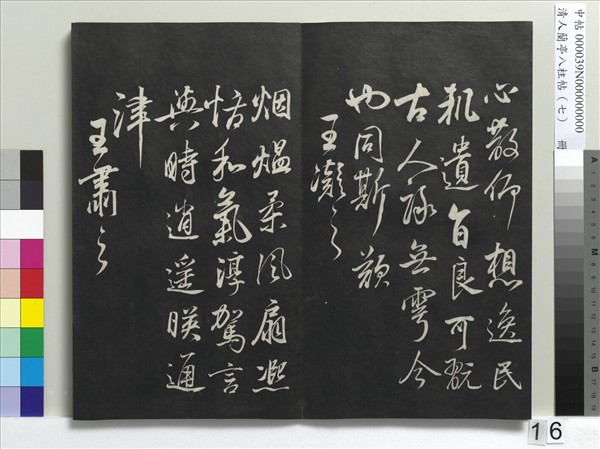 中帖 000039N000000000
清人蘭亭八柱帖（七） 冊
心散仰想逸民
軌遺音良可翫
古人詠無雩今
也同斯歎
王凝之
烟熅柔風扇熈
怡和氣淳駕言
興時逍遥暎通
津
王肅之
16